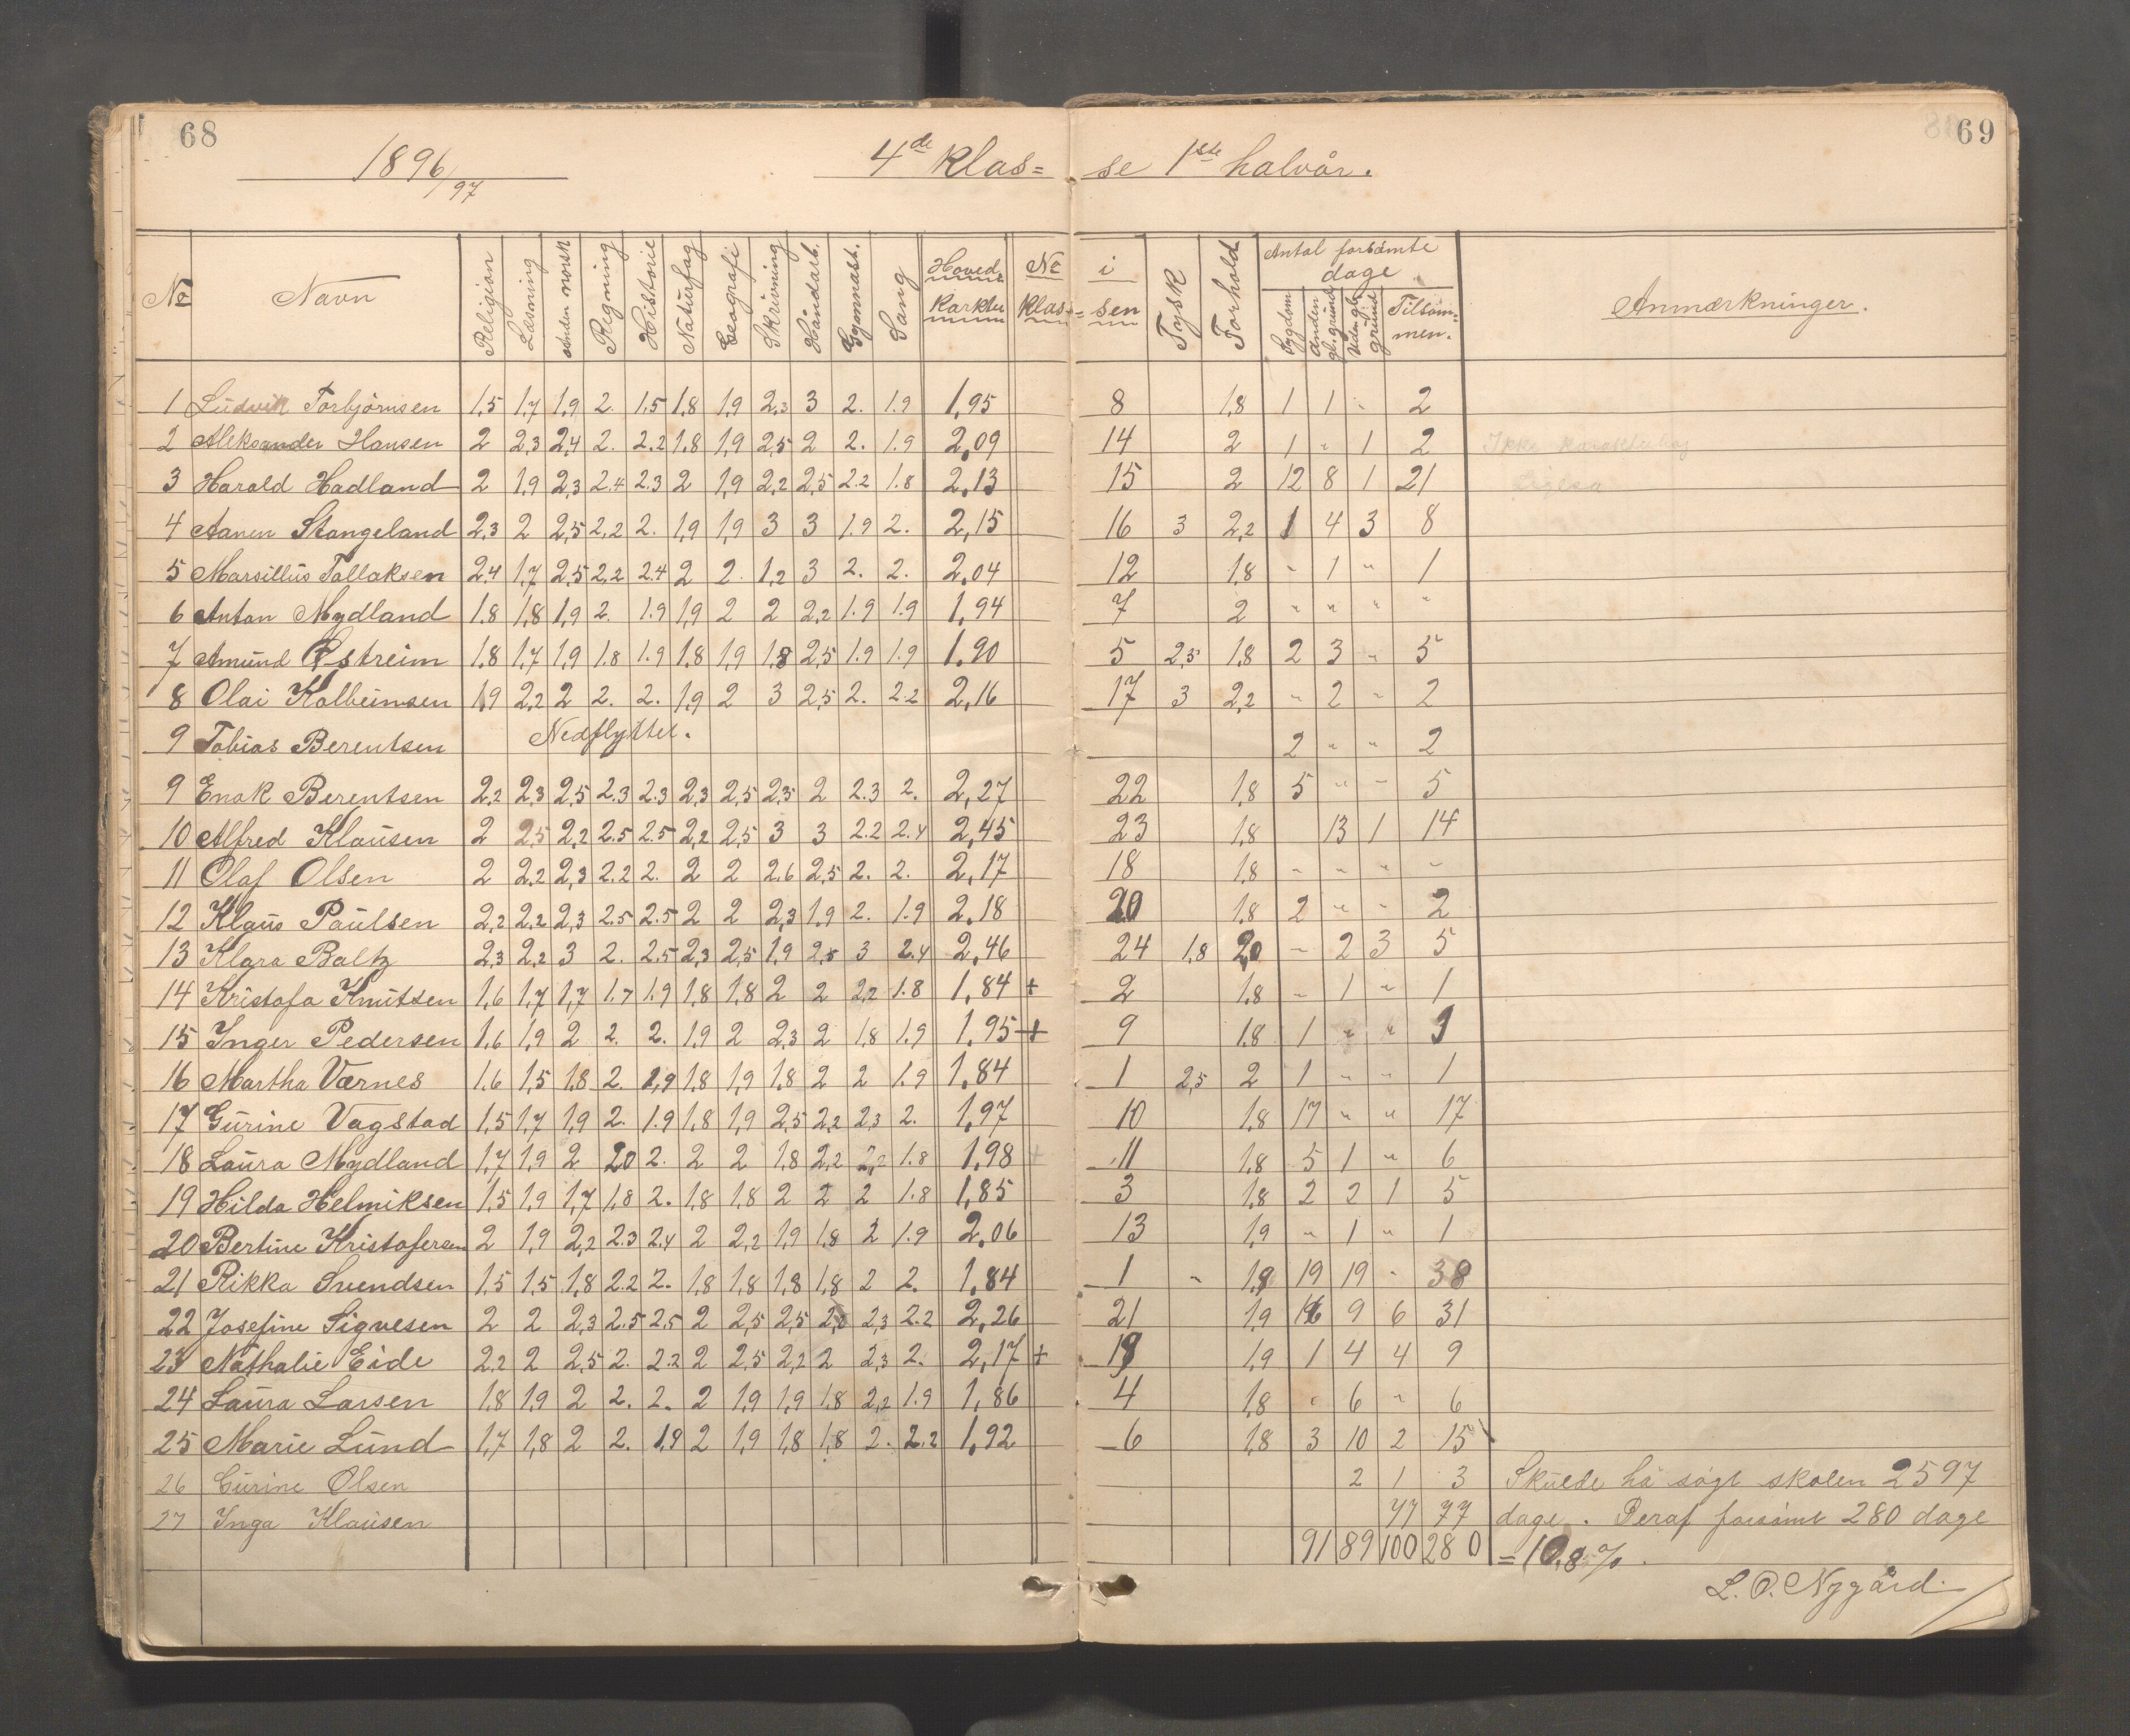 68
69
1896/97
4de klas= se 1ste halvår.
No Navn Religion Læsning Anden norsk Regning Historie Naturfag Geografi Skrivning Håndarb. Gymnast. Sang Hoved karkter No i klas= sen Tysk Forhold Antal forsømte dage Sygdom Anden gl. grund Uden gl. grund Tilsam= men. Anmærkninger.
1 Ludvik Torbjörnsen 1,5 1,7 1,9 2. 1.5 1,8 1,9 2,3 3 2. 1.9 1,95 8 1,8 1 1 " 2
2 Aleksander Hansen 2 2,3 2,4 2. 2.2 1.8 1,9 2,5 2 2. 1.9 2,09 14 2 1 " 1 2 Ikke
3 Harald Hadland 2 1,9 2,3 2.4 2.3 2 1,9 2,2 2,5 2.2 1.8 2,13 15 2 12 8 1 21
4 Aanen Stangeland 2,3 2 2,5 2,2 2. 1,9 1,9 3 3 1.9 2. 2,15 16 3 2,2 1 4 3 8
5 Marsillus Tollaksen 2,4 1,7 2,5 2,2 2.4 2 2. 1,2 3 2. 2. 2,04 12 1,8 " 1 " 1
6 Anton Mydland 1.8 1,8 1,9 2. 1.9 1,9 2 2 2,2 1.9 1.9 1,94 7 2 " " " "
7 Amund Østreim 1,8 1,7 1,9 1.8 1.9 1,8 1,9 1,8 2,5 1.9 1.9 1.90 5 2,5 1,8 2 3 " 5
8 Olai Kolbeinsen 1,9 2,2 2 2. 2. 1,9 2 3 2,5 2. 2.2 2,16 17 3 2,2 " 2 " 2
9 Tobias Berentsen Nedflyttet. 2 " " 2
9 Enok Berentsen 2,2 2,3 2,5 2.3 2.3 2,3 2,5 2,5 2 2.3 2. 2,27 22 1,8 5 " " 5
10 Alfred Klausen 2 2,5 2,2 2.5 2.5 2,2 2,5 3 3 2.2 2.4 2,45 23 1,8 13 1 14
11 Olaf Olsen 2 2,2 2,3 2.2 2. 2 2 2.6 2,5 2. 2. 2,17 18 1,8 " " " "
12 Klaus Paulsen 2,2 2,2 2,3 2.5 2.5 2 2 2,3 1,9 2. 1.9 2.18 20 1,8 2 " " 2
13 Klara Baltz 2,3 2,2 3 2. 2.5 2,3 2,5 1,9 2,5 3 2.4 2,46 24 1,8 2,0 " 2 3 5
14 Kristofa Knutsen 1,6 1,7 1,7 1.7 1.9 1,8 1,8 2 2 2,2 1.8 1,84 + 2 1,8 " 1 " 1
15 Inger Pedersen 1,6 1,9 2 2. 2. 1,9 2 2,3 2 1,8 1.9 1,95 + 9 1,8 1 " " 1
16 Martha Værnes 1,6 1,5 1,8 2. 1,9 1,8 1,9 1,8 2 2 1.9 1,84 1 2,5 2 1 " " 1
17 Gurine Vagstad 1,5 1,7 1,9 2. 1.9 1,8 1,9 2,5 2,2 2,3 2. 1,97 10 1,8 17 " " 17
18 Laura Mydland 1,7 1,9 2 2,0 2. 2 2 1,8 2,2 2,2 1.8 1,98 + 11 1,8 5 1 " 6
19 Hilda Helmiksen 1,5 1,9 1,7 1,8 2. 1,8 1,8 2 2 2 1.8 1,85 3 1,8 2 2 1 5
20 Bertine Kristofersen 2 1,9 2,2 2.3 2.4 2 2,2 1,9 1,8 2 1.9 2,06 13 1,9 " 1 " 1
21 Rikka Svendsen 1,5 1,5 1,8 2.2 2. 1,8 1,8 1,8 1,8 2 2. 1,84 1 " 1,8 19 19 " 38
22 Josefine Sigvesen 2 2 2,3 2.5 2.5 2 2,5 2,5 2,0 2,3 2.2 2,26 21 1,9 16 9 6 31
23 Nathalie Eide 2,2 2 2,5 2. 2.2 2 2,5 2,2 2 2,3 2. 2,17 + 19 1,9 1 4 4 9
24 Laura Larsen 1,8 1,9 2 2. 2. 2 1,9 1,9 1,8 2,2 1.9 1,86 4 1,8 " 6 " 6
25 Marie Lund 1,7 1,8 2 2. 1,9 2 1,9 1,8 1,8 2. 2.2 1,92 6 1,8 3 10 2 15
26 Gurine Olsen 2 1 3 Skulde ha søgt skolen 2597
27 Inga Klausen 77 77 dage. Deraf forsømt 280 dage
91 89 100 280 = 10,8 %.
L. O. Nygård.